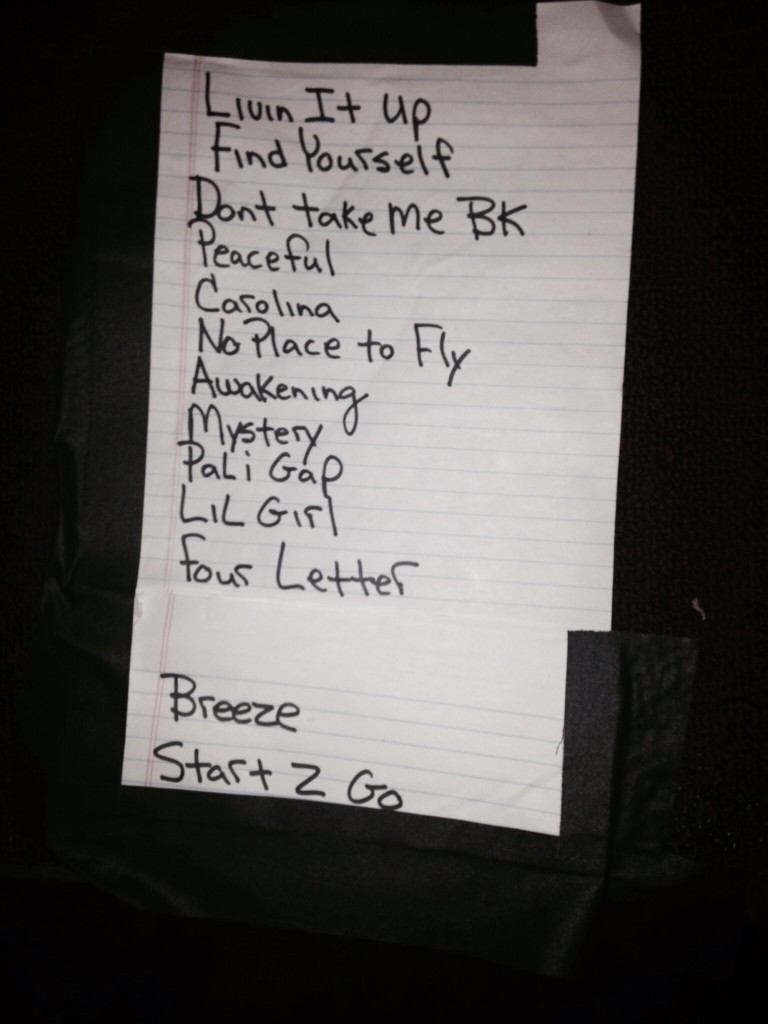 Livin It up
Find Yourself
Dont take me BK
Peaceful
Carolina
No Place to Fly
Awakening
Mystery
Pali Gap
LiL Girl
Four Letter
Breeze
Start 2 Go